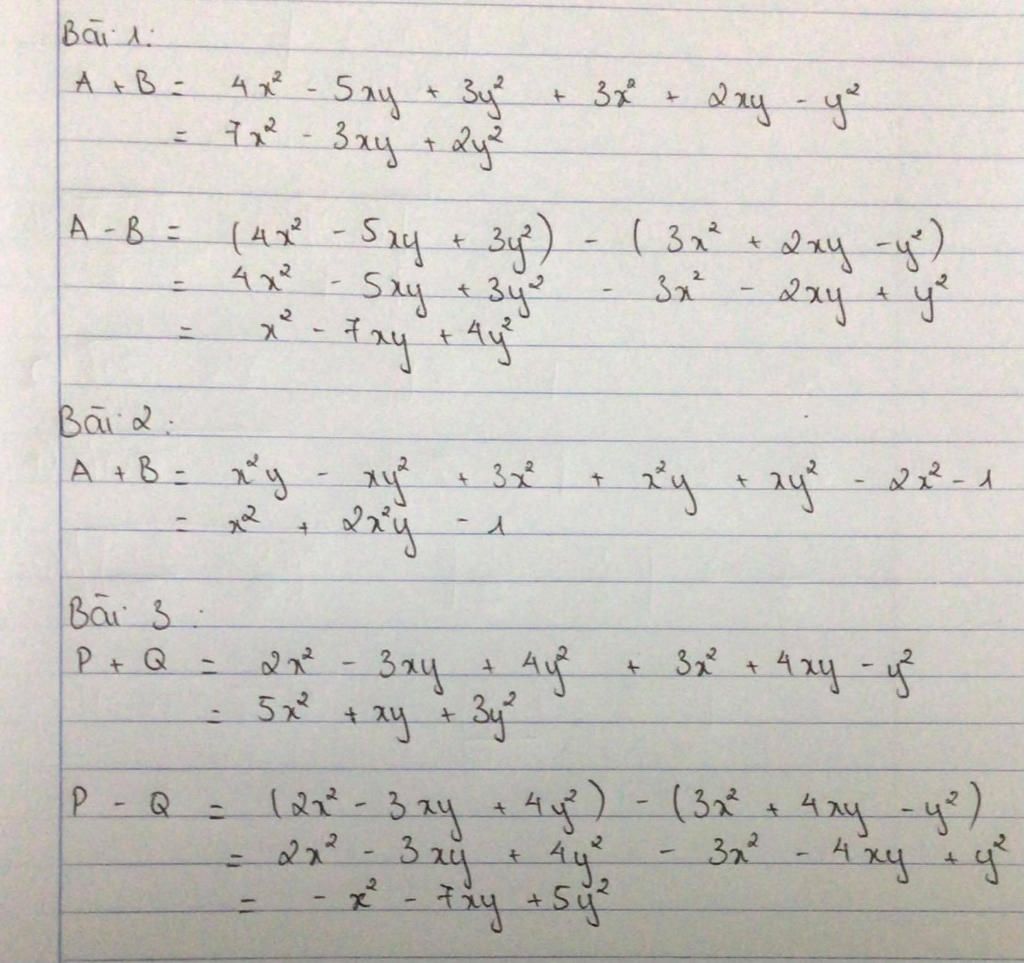 Bài 1:
A + B = 4x² - 5xy + 3y² + 3x² + 2xy - y²
= 7x² - 3xy + 2y²
A - B = (4x² - 5xy + 3y²) - (3x² + 2xy - y²)
= 4x² - 5xy + 3y² - 3x² - 2xy + y²
= x² - 7xy + 4y²
Bài 2:
A + B = x²y - xy² + 3x² + x²y + xy² - 2x² - 1
= x² + 2x²y - 1
Bài 3:
P + Q = 2x² - 3xy + 4y² + 3x² + 4xy - y²
= 5x² + xy + 3y²
P - Q = (2x² - 3xy + 4y²) - (3x² + 4xy - y²)
= 2x² - 3xy + 4y² - 3x² - 4xy + y²
= - x² - 7xy + 5y²